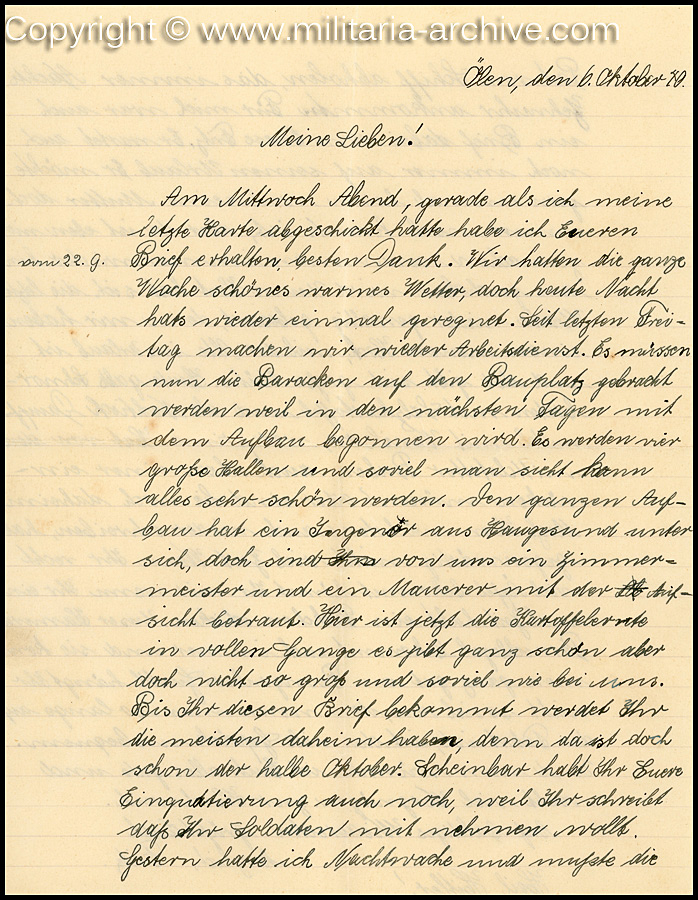 Copyright © www.militaria-archive.com
Ölen, den 6. Oktober 40.
Meine Lieben!
Am Mittwoch Abend, gerade als ich meine
letzte Karte abgeschickt hatte habe ich Eueren
vom 22. 9. Brief erhalten, besten Dank. Wir hatten die ganze
Woche schönes warmes Wetter, doch heute Nacht
hats wieder einmal geregnet. Seit letzten Frei-
tag machen wir wieder Arbeitsdienst. Es müssen
nun die Baracken auf den Bauplatz gebracht
werden weil in den nächsten Tagen mit
dem Aufbau begonnen wird. Es werden vier
große Hallen und soviel man sieht kann
alles sehr schön werden. Den ganzen Auf-
bau hat ein Ingenör aus Haugesund unter
sich, doch sind von uns ein Zimmer-
meister und ein Mauerer mit der Auf-
sicht betraut. Hier ist jetzt die Kartoffelernte
in vollen Gange es gibt ganz schön aber
doch nicht so groß und soviel wie bei uns.
Bis Ihr diesen Brief bekommt werdet Ihr
die meisten daheim haben, denn da ist doch
schon der halbe Oktober. Scheinbar habt Ihr Euere
Einquatierung auch noch, weil Ihr schreibt
daß Ihr Soldaten mit nehmen wollt.
Gestern hatte ich Nachtwache und mußte die